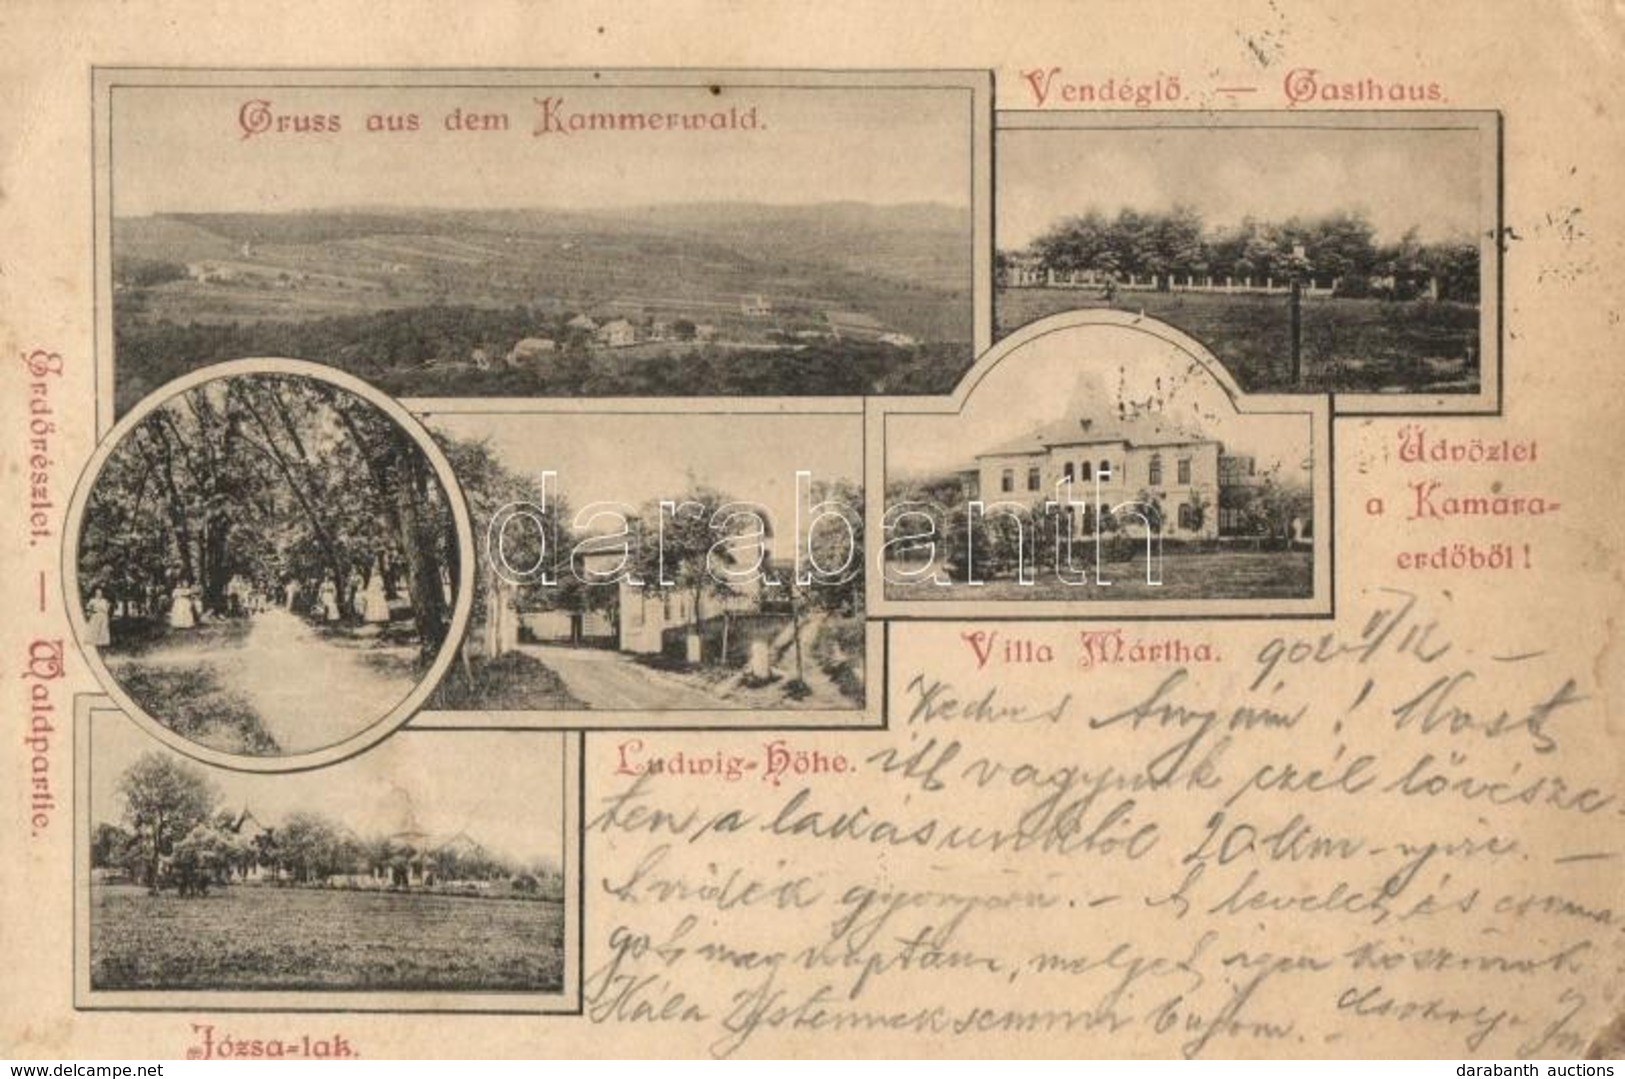 Gruss aus dem Kammerwald.
Vendéglő. — Gasthaus.
Erdőrészlet. — Waldpartie.
Üdvözlet
a Kamara-
erdőből!
Villa Mártha.
Ludwig-Höhe.
Józsa-lak.
Kedves Anyám! Most
itt vagyunk czél lövésze-
ten, a lakásunktól 20 km-nyire. —
A vidék gyönyörű. – A levelet, és csoma
got megkaptam, melyet igen köszönök
Hála Istennek semmi bajom. –
darabanth
darabanth auctions